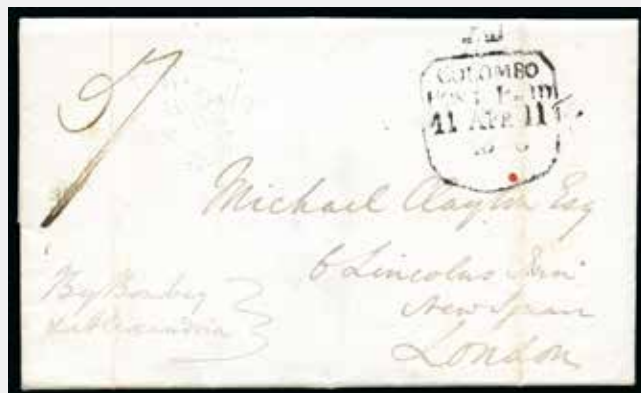 COLOMBO
POST PAID
11 APR 11
Michael Clayton Esq
6 Lincolns Inn
New Square
London
By Bombay
via Alexandria